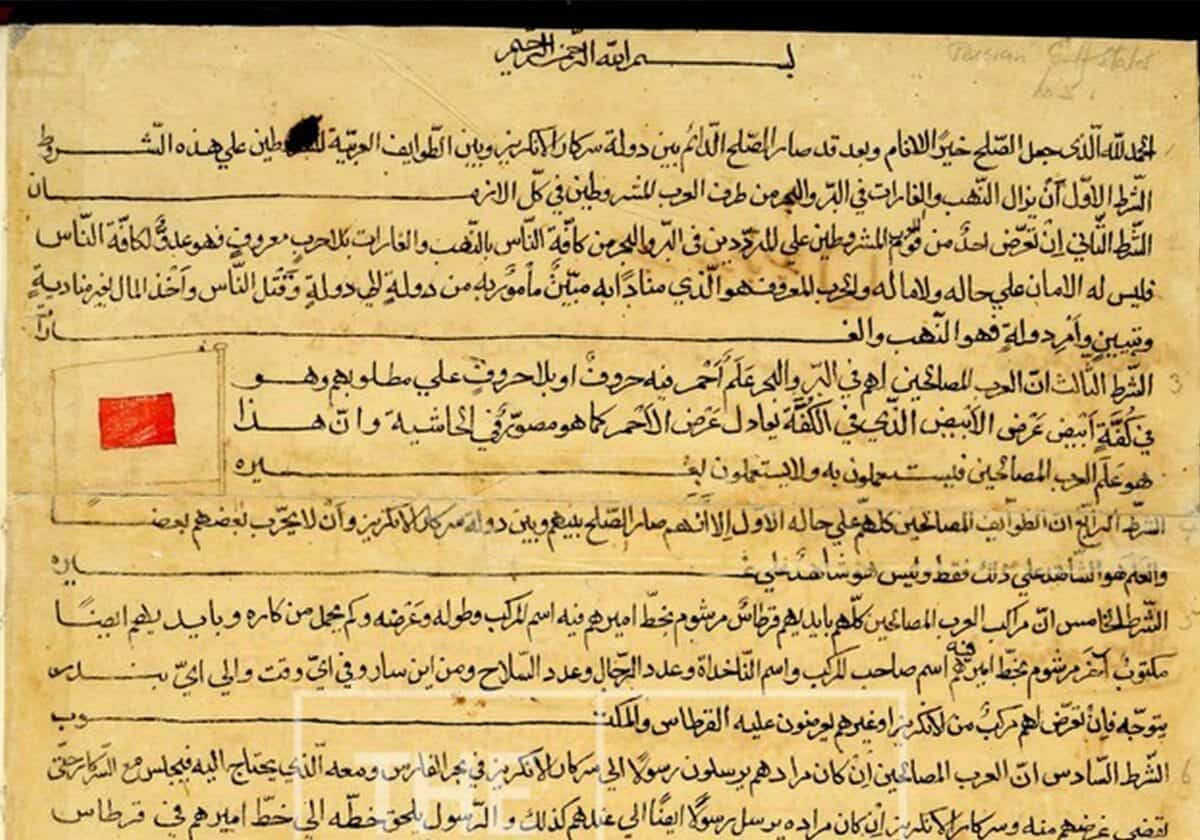 بسم الله الرحمن الرحيم
Persian Gulf States
No. 5
الحمد لله الّذي جعل الصّلح خيرًا للانام وبعد قد صار الصّلح الدّائم بين دولة سركار الانكريز وبين الطّوايف العربيّة المشروطين علي هذه الشّروط
الشّرط الاوّل أنْ يزال النّهب والغارات في البرّ والبحر من طرف العرب المشروطين في كلّ الازمان
الشّرط الثّاني اِنْ تعرّض احدٌ من قوم المشروطين علي المتردّدين في البرّ والبحر من كافّة النّاس بالنّهب والغارات بلا حربٍ معروفٍ فهو عدوٌّ لكافّة النّاس
فليس له الامان علي حاله ولا ماله والحرب المعروف هو الّذي منادًا به مبيّنٌ مأمورٌ به من دولةٍ الي دولةٍ وَقتل النّاس وَأخذ المال لغير مناديةٍ
وتبيينٍ وأمرِ دولةٍ فهو النّهب والغارات
3
الشّرط الثّالث انّ العرب المصالحين لهم في البرّ والبحر عَلَم أحْمر فيه حروفٌ او بلا حروفٍ علي مطلوبهم وهو
في كُفَّةٍ أبْيض عَرْض الابْيض الّذي في الكفّة يعادل عَرْض الاحْمر كما هو مصوّرٌ في الحاشية وانّ هذا
هو عَلَم العرب المصالحين فيستعملون به ولا يستعملون بغيره
4
الشّرط الرّابع انّ الطّوايف المصالحين كلّهم علي حاله الاوّل الا انّهم صار الصّلح بينهم وبين دولة سركار الانكريز وأنْ لا يحرّب بعضهم بعض
والعَلَم هو الشّاهد علي ذلك فقط وليس هو شاهدٌ علي غيره
5
الشّرط الخامس انّ مراكب العرب المصالحين كلّهم بايديهم قرطاسٌ مرشوم بخطّ اميرهم فيه اسم المركب وطوله وعَرْضه وكم يحمل من كاره وبايديهم ايضًا
مكتوبٌ آخَر مرشوم بخطّ اميرهم فيه اسم صاحب المركب واسم النّاخداة وعدد الرّجال وعدد السّلاح ومن اين سار وفي ايّ وقت والي ايّ بندر
يتوجّه فانْ تعرّض لهم مركبٌ من الانكريز او غيرهم يعرضون عليه القرطاس والمكتوب
6
الشّرط السّادس انّ العرب المصالحين اِنْ كان مرادهم يرسلون رسولًا الي سركار الانكريز في بحر الفارس ومعه الّذي يحتاج اليه فيجلس مع السّركار حتّي
تقضي غرضهم منه وسركار الانكريز اِنْ كان مراده يرسل رسولًا ايضًا الي عندهم كذلك والرّسول يلحق خطّه الي خطّ اميرهم في قرطاس
THE